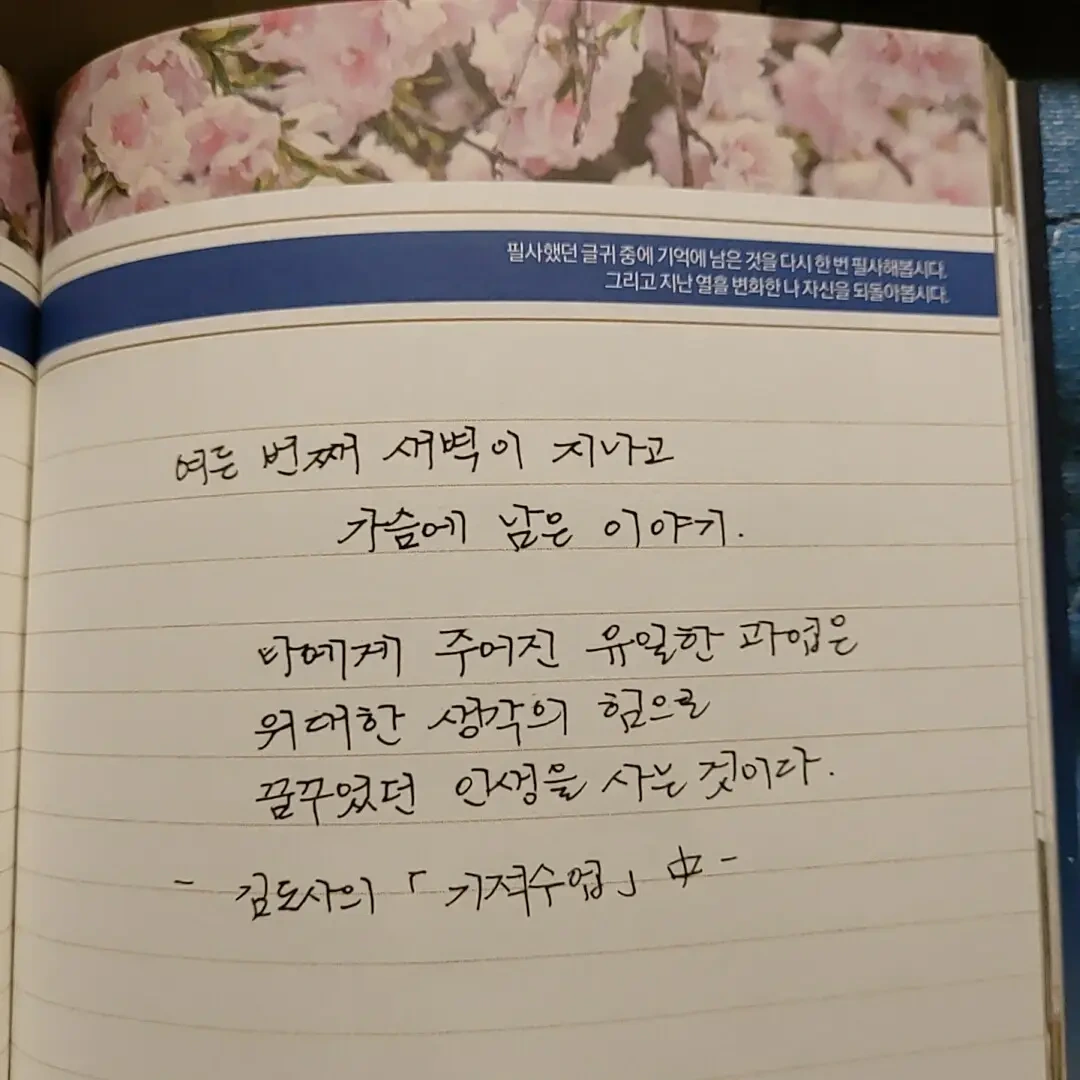 필사했던 글귀 중에 기억에 남은 것을 다시 한 번 필사해봅시다.
그리고 지난 열흘 변화한 나 자신을 되돌아봅시다.
여든 번째 새벽이 지나고
가슴에 남은 이야기.
나에게 주어진 유일한 과업은
위대한 생각의 힘으로
꿈꾸었던 인생을 사는 것이다.
- 김도사의 「기적수업」 中 -